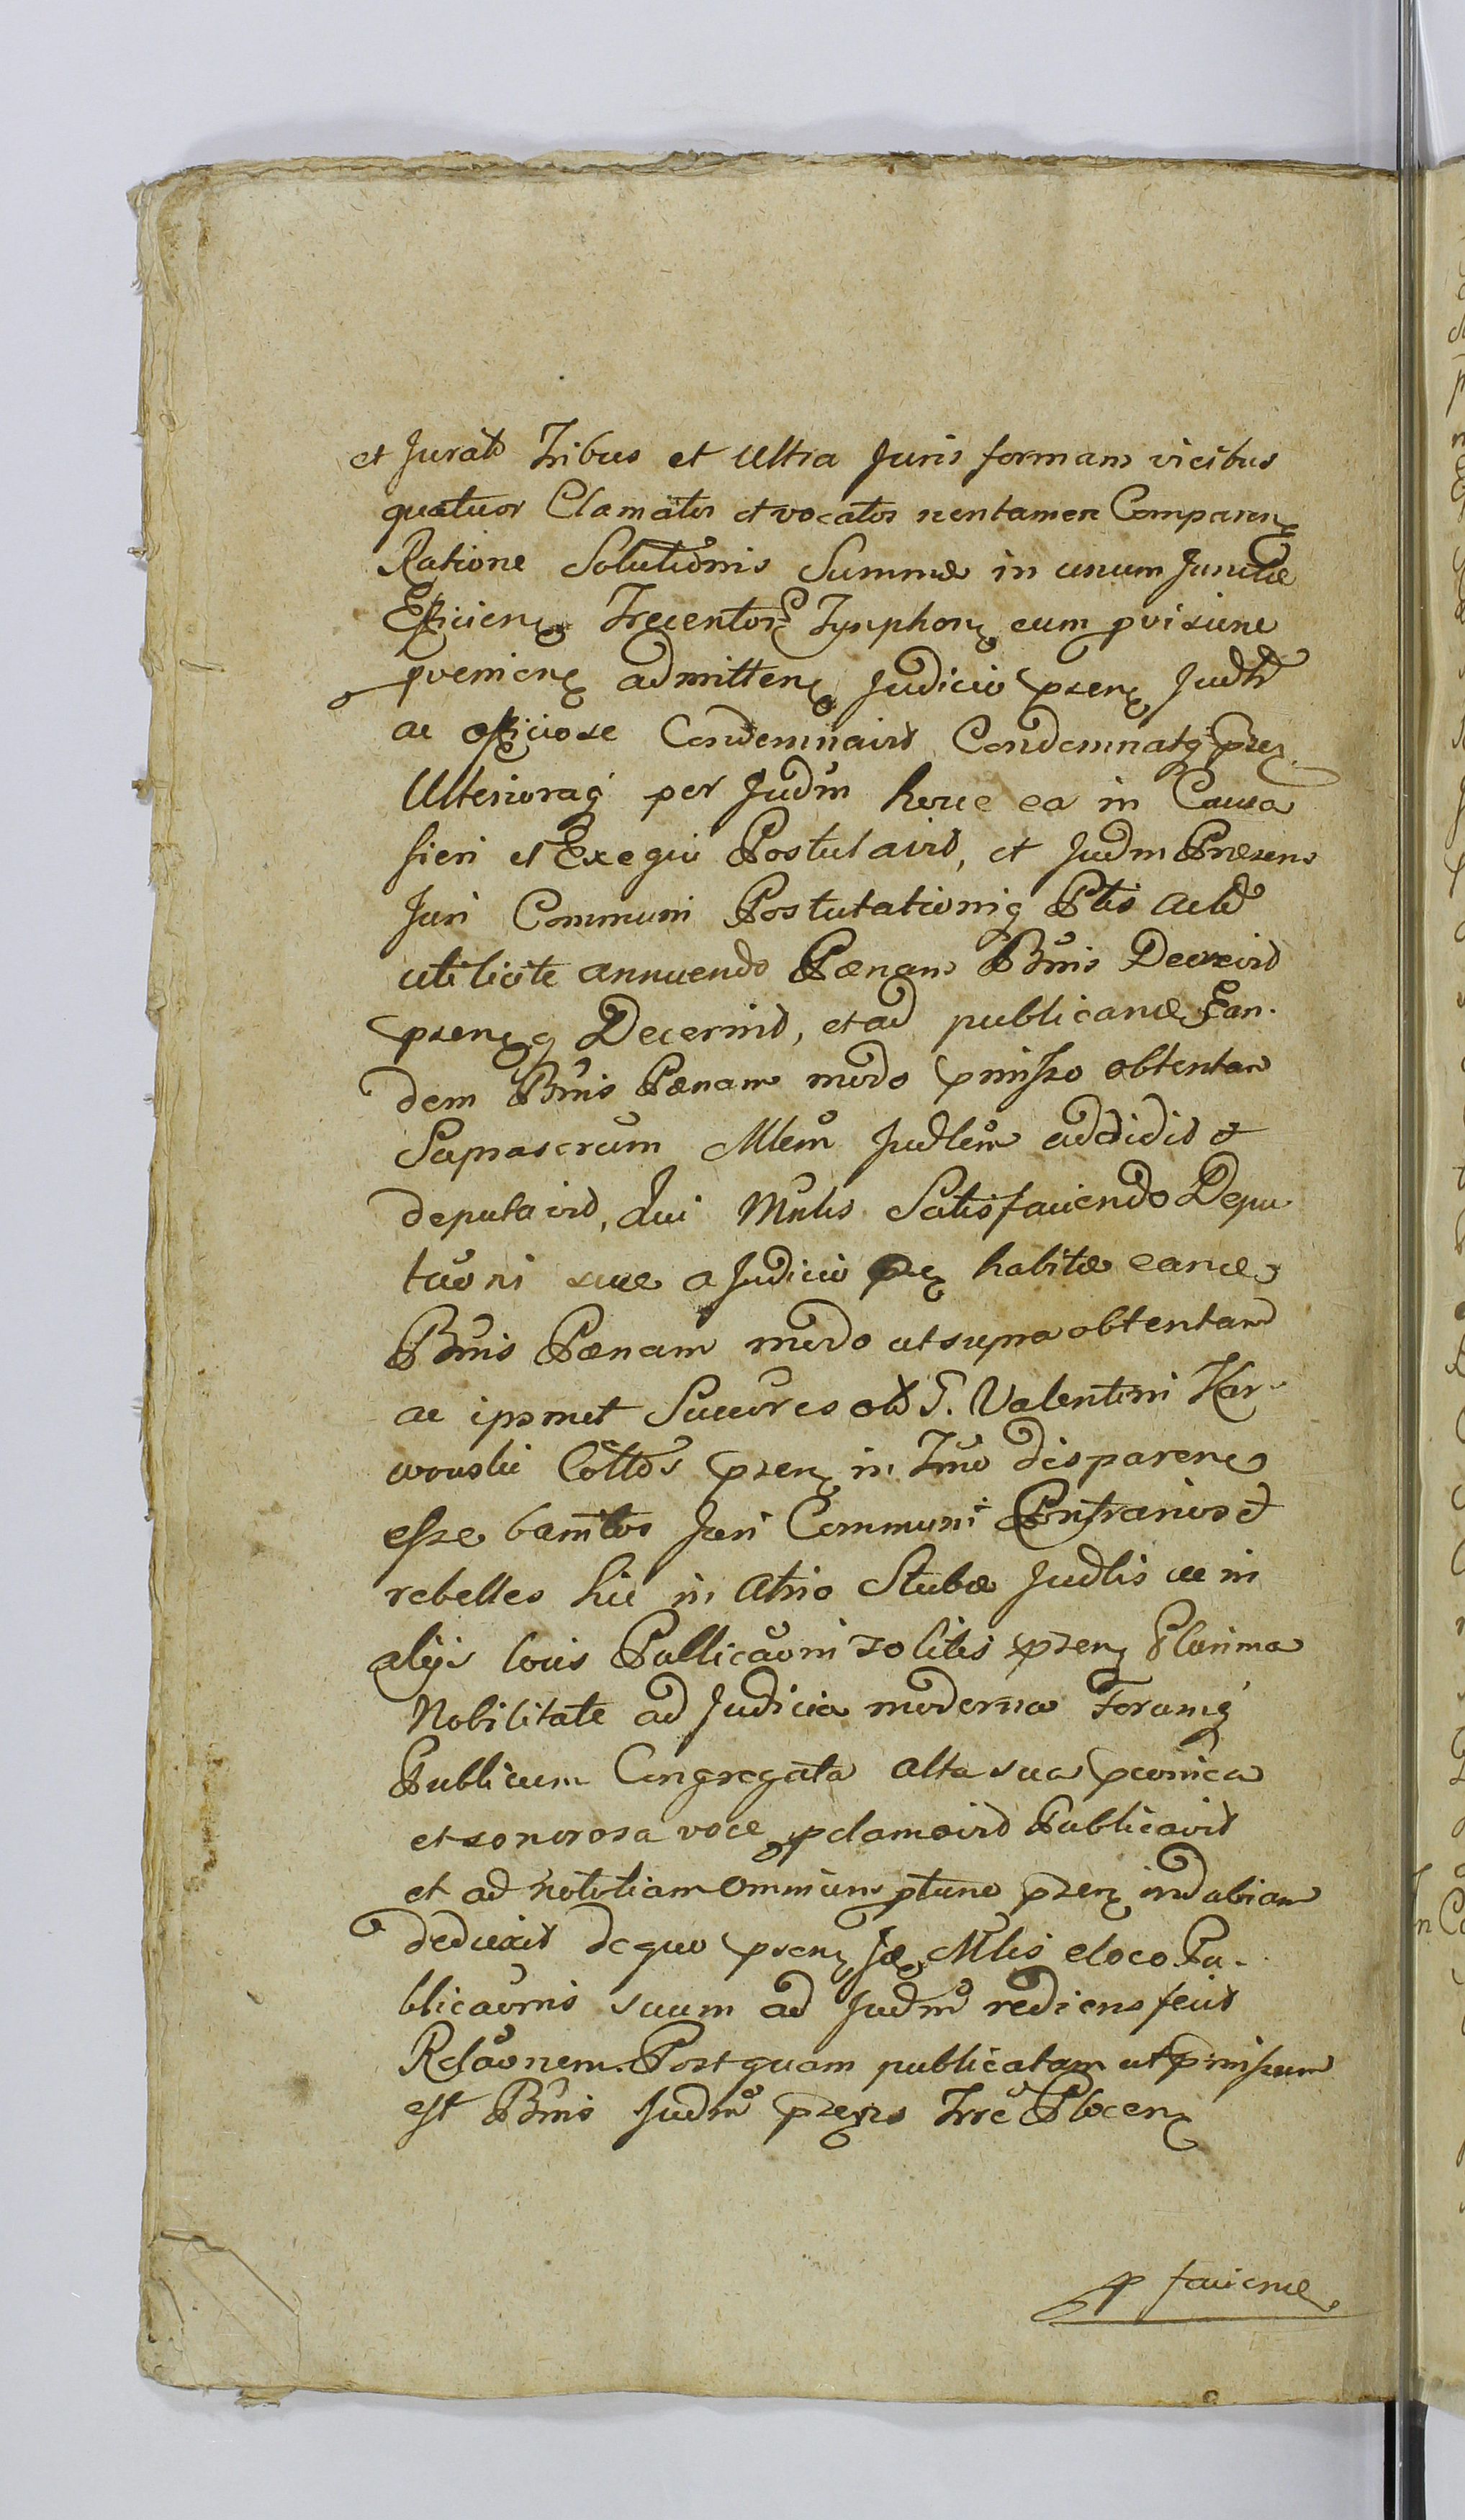 et Jurato Tribus et Ultra Juris formam vicibus
quatuor Clamatos et vocatos nontamen Comparen
Ratione Solutionis Summæ in unum Junctæ
Efficien Trecentor Tynphon cum provisione
provenien admitten Judicio præsen Judlr
ac officiose Condemnavit Condemnatq præ
Ulterioraq per Judm hocce ea in Causa
fieri et Exequi Postulavit, et Judm Præsens
Juri Communi Postulationiq Ptis Acto
uti licite annuendo Pænam Bnis Decrevit
præsenq Decernit, et ad publicand Ean-
dem Bnis Pænam modo pmisso obtentam
Suprascrum Mlem Judlem addidit et
deputavit, Qui Mnlis Satisfaciendo Depu
taoni suæ a Judicio præ habitæ eand
Bnis Pænam modo ut supra obtentam
ac ipsmet Succores olt G. Valentini Kar-
wowski Cittos præsen in Tmo disparen
esse bannitos Juri Communi Contrarios et
rebelles hic in Atrio Stubæ Judlis ac in
alijs locis Publicaoni solitis præsen Plurima
Nobilitate ad Judicia moderna Forumq
Publicum Congregata alta sua pconica
et sonorosa voce pclamavit Publicavit
et ad notitiam omnium ptunc præsen indubiam
deduxit de quo præsen Jd Mlis e loco Pu-
blicaonis suum ad Judm rediens fecit
Relaonem. Postquam publicatam ut pmissum
est Bnis Judm præsens Trrē Plocen
p faciend